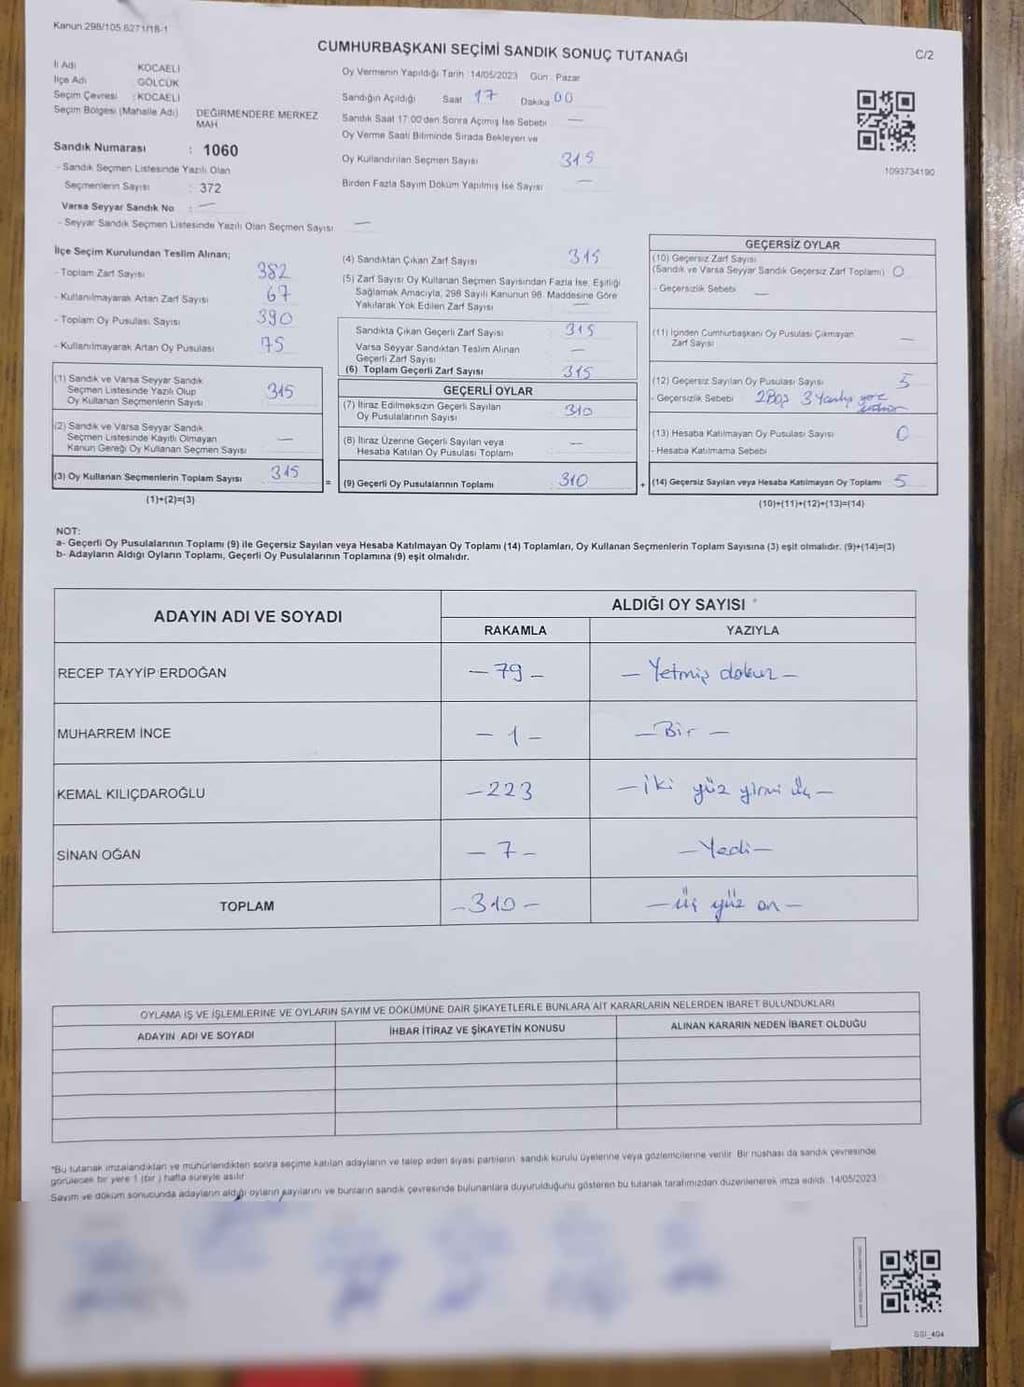 Kanun 298/105 6271/18-1
CUMHURBAŞKANI SEÇİMİ SANDIK SONUÇ TUTANAĞI
C/2
İl Adı KOCAELİ
İlçe Adı GÖLCÜK
Seçim Çevresi : KOCAELİ
Seçim Bölgesi (Mahalle Adı) DEĞİRMENDERE MERKEZ MAH.
Sandık Numarası : 1060
- Sandık Seçmen Listesinde Yazılı Olan
Seçmenlerin Sayısı : 372
Varsa Seyyar Sandık No : —
- Seyyar Sandık Seçmen Listesinde Yazılı Olan Seçmen Sayısı —
Oy Vermenin Yapıldığı Tarih 14/05/2023 Gün : Pazar
Sandığın Açıldığı Saat 17 Dakika 00
Sandık Saat 17:00'den Sonra Açılmış İse Sebebi —
Oy Verme Saati Bitiminde Sırada Bekleyen ve
Oy Kullandırılan Seçmen Sayısı 315
Birden Fazla Sayım Döküm Yapılmış İse Sayısı —
1093734190
İlçe Seçim Kurulundan Teslim Alınan;
- Toplam Zarf Sayısı 382
- Kullanılmayarak Artan Zarf Sayısı 67
- Toplam Oy Pusulası Sayısı 390
- Kullanılmayarak Artan Oy Pusulası 75
(1) Sandık ve Varsa Seyyar Sandık
Seçmen Listesinde Yazılı Olup
Oy Kullanan Seçmenlerin Sayısı 315
(2) Sandık ve Varsa Seyyar Sandık
Seçmen Listesinde Kayıtlı Olmayan
Kanun Gereği Oy Kullanan Seçmen Sayısı —
(3) Oy Kullanan Seçmenlerin Toplam Sayısı 315
(1)+(2)=(3)
=
(4) Sandıktan Çıkan Zarf Sayısı 315
(5) Zarf Sayısı Oy Kullanan Seçmen Sayısından Fazla İse, Eşitliği
Sağlamak Amacıyla, 298 Sayılı Kanunun 98. Maddesine Göre
Yakılarak Yok Edilen Zarf Sayısı —
Sandıkta Çıkan Geçerli Zarf Sayısı 315
Varsa Seyyar Sandıktan Teslim Alınan
Geçerli Zarf Sayısı —
(6) Toplam Geçerli Zarf Sayısı 315
GEÇERLİ OYLAR
(7) İtiraz Edilmeksizin Geçerli Sayılan
Oy Pusulalarının Sayısı 310
(8) İtiraz Üzerine Geçerli Sayılan veya
Hesaba Katılan Oy Pusulası Toplamı —
(9) Geçerli Oy Pusulalarının Toplamı 310
+
GEÇERSİZ OYLAR
(10) Geçersiz Zarf Sayısı
(Sandık ve Varsa Seyyar Sandık Geçersiz Zarf Toplamı) 0
- Geçersizlik Sebebi —
(11) İçinden Cumhurbaşkanı Oy Pusulası Çıkmayan
Zarf Sayısı —
(12) Geçersiz Sayılan Oy Pusulası Sayısı 5
- Geçersizlik Sebebi 2 Boş 3 Yanlış yere
(13) Hesaba Katılmayan Oy Pusulası Sayısı 0
- Hesaba Katılmama Sebebi
(14) Geçersiz Sayılan veya Hesaba Katılmayan Oy Toplamı 5
(10)+(11)+(12)+(13)=(14)
NOT:
a- Geçerli Oy Pusulalarının Toplamı (9) ile Geçersiz Sayılan veya Hesaba Katılmayan Oy Toplamı (14) Toplamları, Oy Kullanan Seçmenlerin Toplam Sayısına (3) eşit olmalıdır. (9)+(14)=(3)
b- Adayların Aldığı Oyların Toplamı, Geçerli Oy Pusulalarının Toplamına (9) eşit olmalıdır.
ADAYIN ADI VE SOYADI
ALDIĞI OY SAYISI
RAKAMLA YAZIYLA
RECEP TAYYİP ERDOĞAN – 79 – – Yetmiş dokuz –
MUHARREM İNCE – 1 – – Bir –
KEMAL KILIÇDAROĞLU – 223 – iki yüz yirmi üç –
SİNAN OĞAN – 7 – – Yedi –
TOPLAM – 310 – – üç yüz on –
OYLAMA İŞ VE İŞLEMLERİNE VE OYLARIN SAYIM VE DÖKÜMÜNE DAİR ŞİKAYETLERLE BUNLARA AİT KARARLARIN NELERDEN İBARET BULUNDUKLARI
ADAYIN ADI VE SOYADI İHBAR İTİRAZ VE ŞİKAYETİN KONUSU ALINAN KARARIN NEDEN İBARET OLDUĞU
*Bu tutanak imzalandıktan ve mühürlendikten sonra seçime katılan adayların ve talep eden siyasi partilerin sandık kurulu üyelerine veya gözlemcilerine verilir. Bir nüshası da sandık çevresinde
görülecek bir yere 1 (bir) hafta süreyle asılır.
Sayım ve döküm sonucunda adayların aldığı oyların sayılarını ve bunların sandık çevresinde bulunanlara duyurulduğunu gösteren bu tutanak tarafımızdan düzenlenerek imza edildi. 14/05/2023
SSI_404